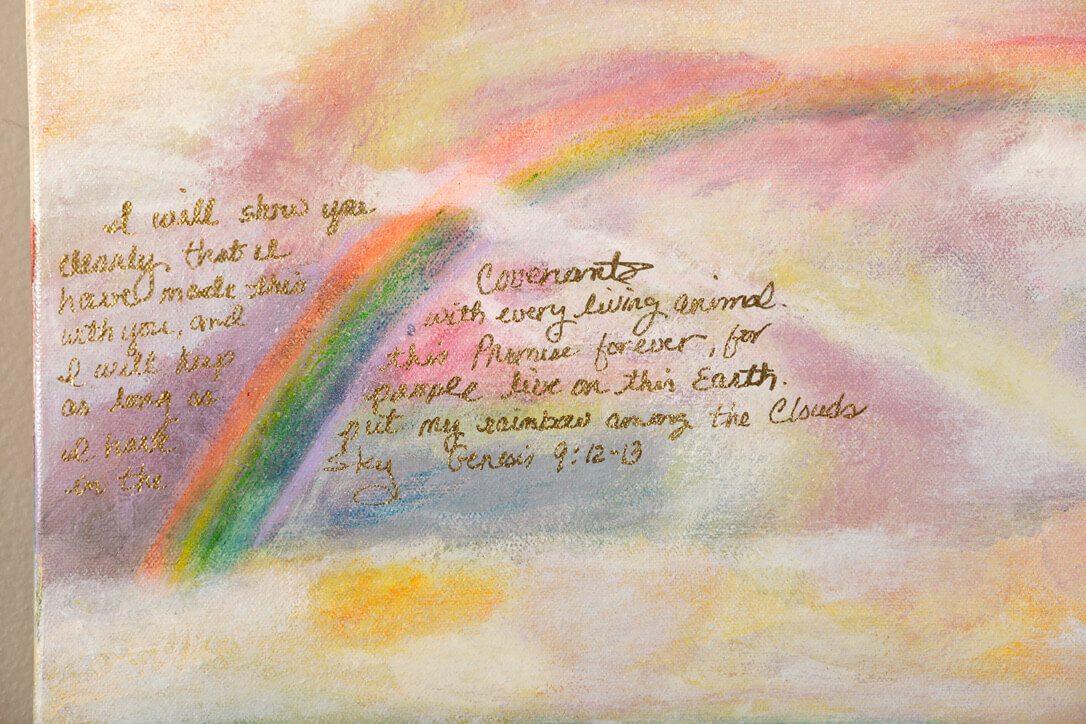 I will show you
clearly that I
have made this Covenants
with you, and with every living animal.
I will keep this Promise forever, for
as long as people live on this Earth.
I have put my rainbow among the Clouds
in the Sky Genesis 9:12-13